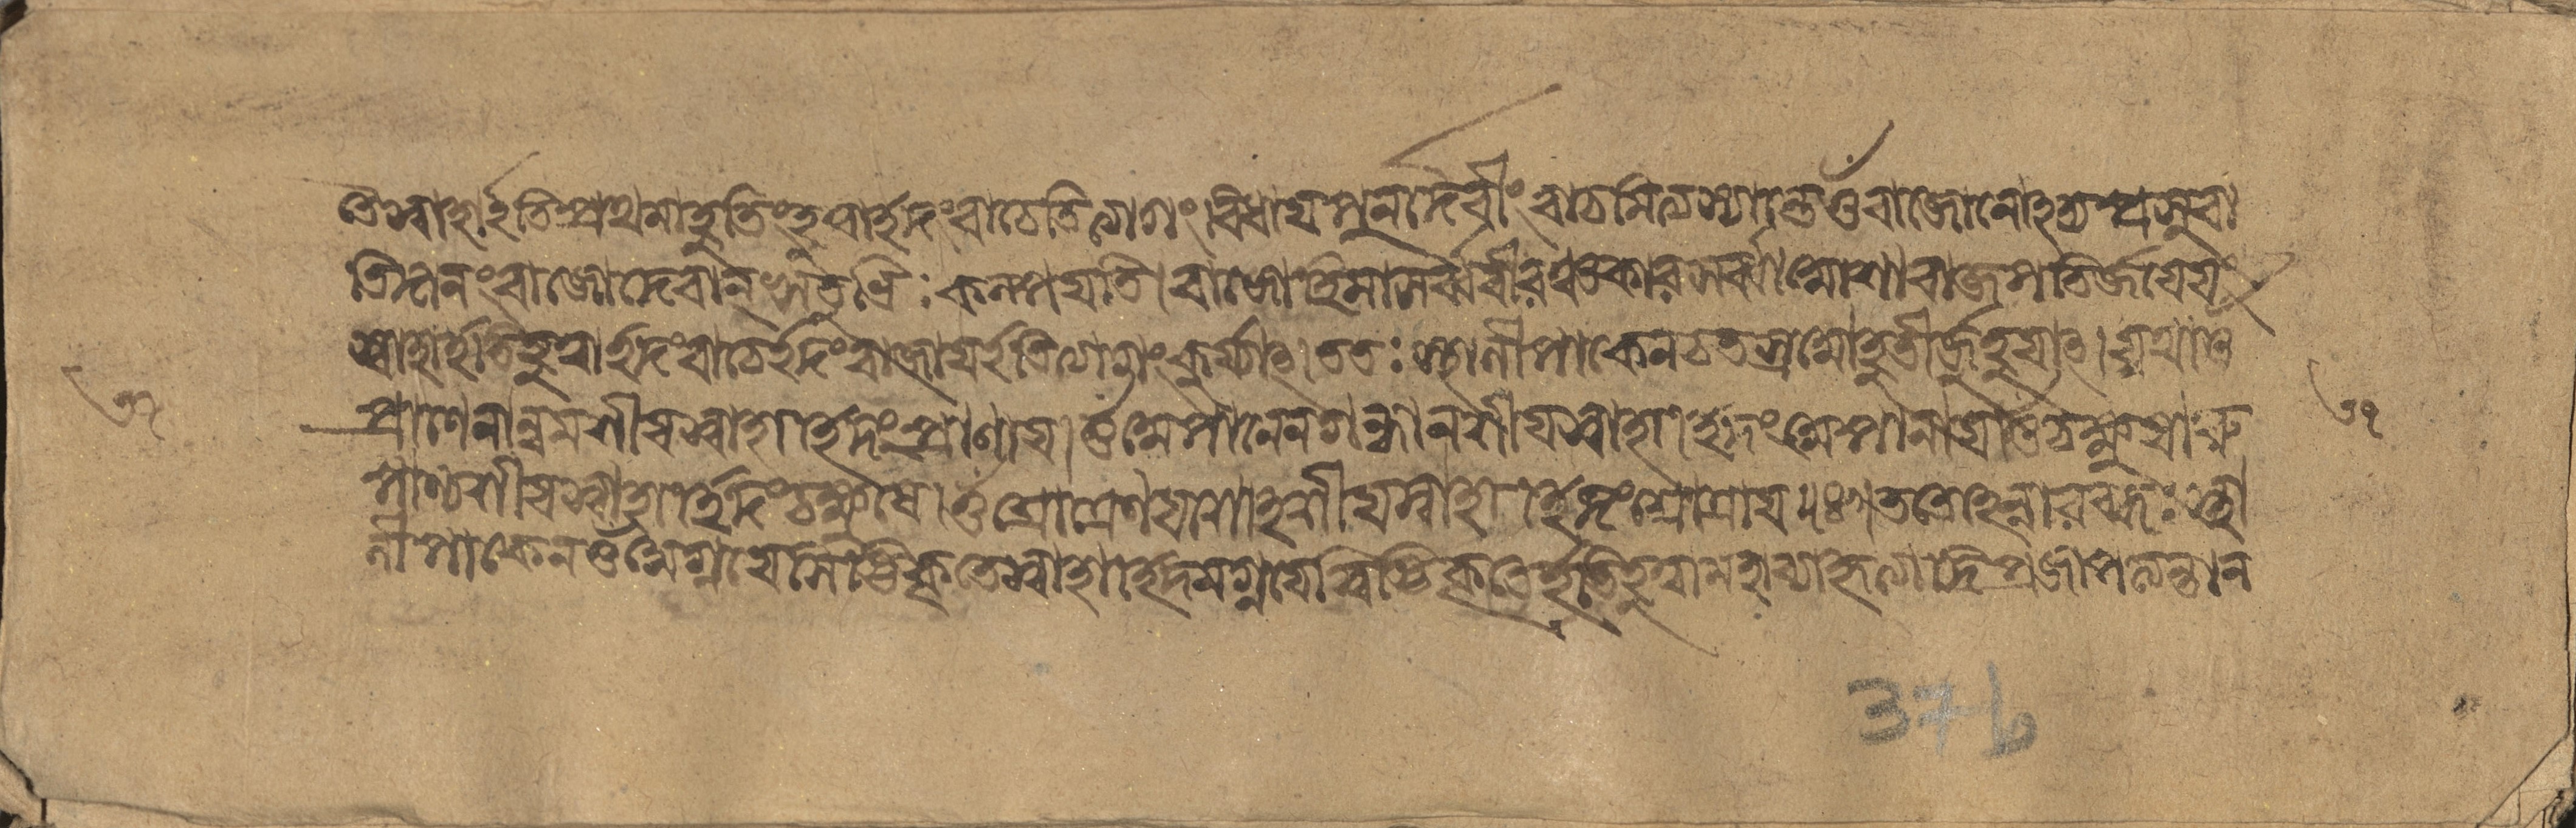 তেস্বাহা ইতিপ্রথমাহুতিংহুত্বা ইদংবাচেতিত্যাগং বিধায়পুনর্দেবীং বাচমিত্যস্যান্তে ওঁবাজোনোহদ্যপ্রসুবা
তিদানংবাজোদেবান্ ঋতুভিঃ কল্পয়াতি। বাজোহিমাসর্ব্ববীরং চকারসর্ব্বাআশাবাজপতির্জয়েয়ং
স্বাহা ইতিহুত্বা ইদংবাচে ইদংবাজায় ইতিত্যাগং কুর্য্যাৎ। ততঃ স্থালীপাকেনচতস্রআহুতীর্জুহুয়াৎ। যথা ওঁ
প্রাণেনান্নমশীয়স্বাহা ইদংপ্রাণায়। ওঁঅপানেনগন্ধানশীয়স্বাহা ইদংঅপানায় ওঁচক্ষুষারূ
পাণ্যশীয়স্বাহা ইদংচক্ষুষে। ওঁশ্রোত্রেণযশোহশীয়স্বাহা ইদংশ্রোত্রায়॥ ততোহন্বারব্ধঃ স্থা
লীপাকেন ওঁঅগ্নয়েস্বিষ্টিকৃতেস্বাহা ইদমগ্নয়েস্বিষ্টিকৃতে ইতিহুত্বামহাব্যাহৃত্যাদিপ্রাজাপত্যন্তান
৩৭
৩৭
37b